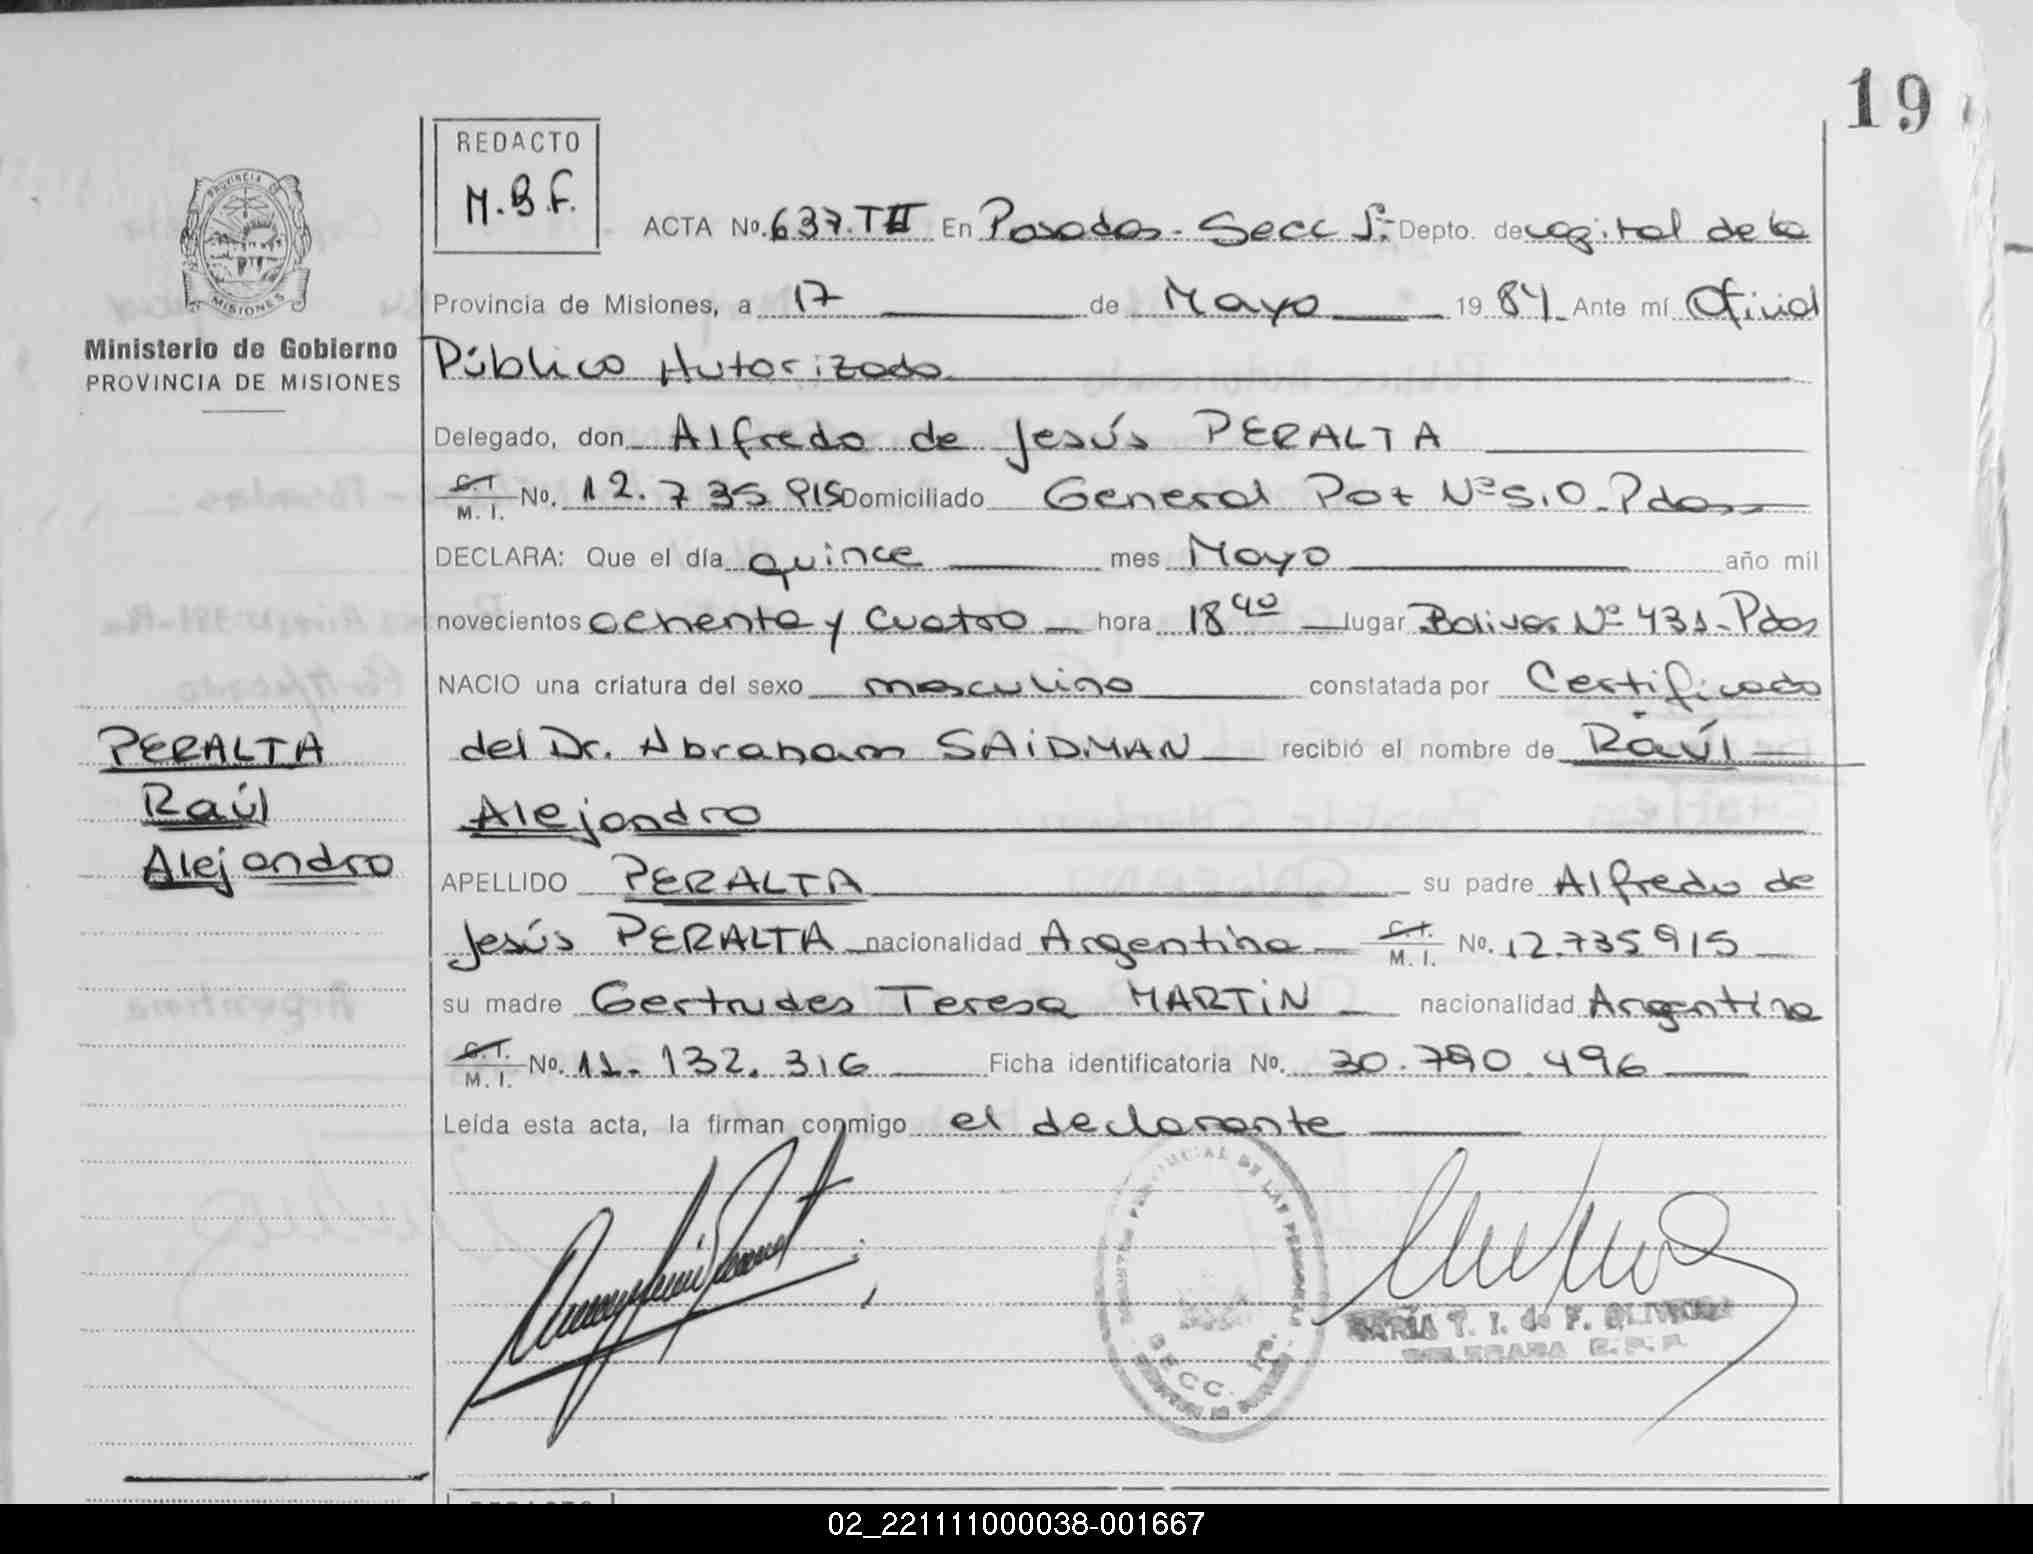 19
REDACTO
M.B.F.
ACTA No. 637. TII En Posadas - Secc 1ª Depto. de capital de la
Provincia de Misiones, a 17 de Mayo 1984 Ante mí Oficial
Ministerio de Gobierno
PROVINCIA DE MISIONES
Público Autorizado
Delegado, don Alfredo de Jesús PERALTA
C.I. M. I. No. 12.735.915 Domiciliado General Paz Nº 510. Pdas
DECLARA: Que el día quince mes Mayo año mil
novecientos ochenta y cuatro hora 18 40 lugar Bolivar Nº 431 - Pdas
NACIO una criatura del sexo masculino constatada por Certificado
del Dr. Abraham SAIDMAN recibió el nombre de Raúl
Alejandro
PERALTA
Raúl
Alejandro
APELLIDO PERALTA su padre Alfredo de
Jesús PERALTA nacionalidad Argentina C.I. M. I. No. 12.735.915
su madre Gertrudes Teresa MARTIN nacionalidad Argentina
C.I. M. I. No. 11.132.316 Ficha identificatoria No. 30.790.496
Leída esta acta, la firman conmigo el declarante
PROVINCIAL DE LAS PERSONAS
SECC.
MARÍA T. I. de F. OLIVEIRA
DELEGADA R.P.P.
02_221111000038-001667